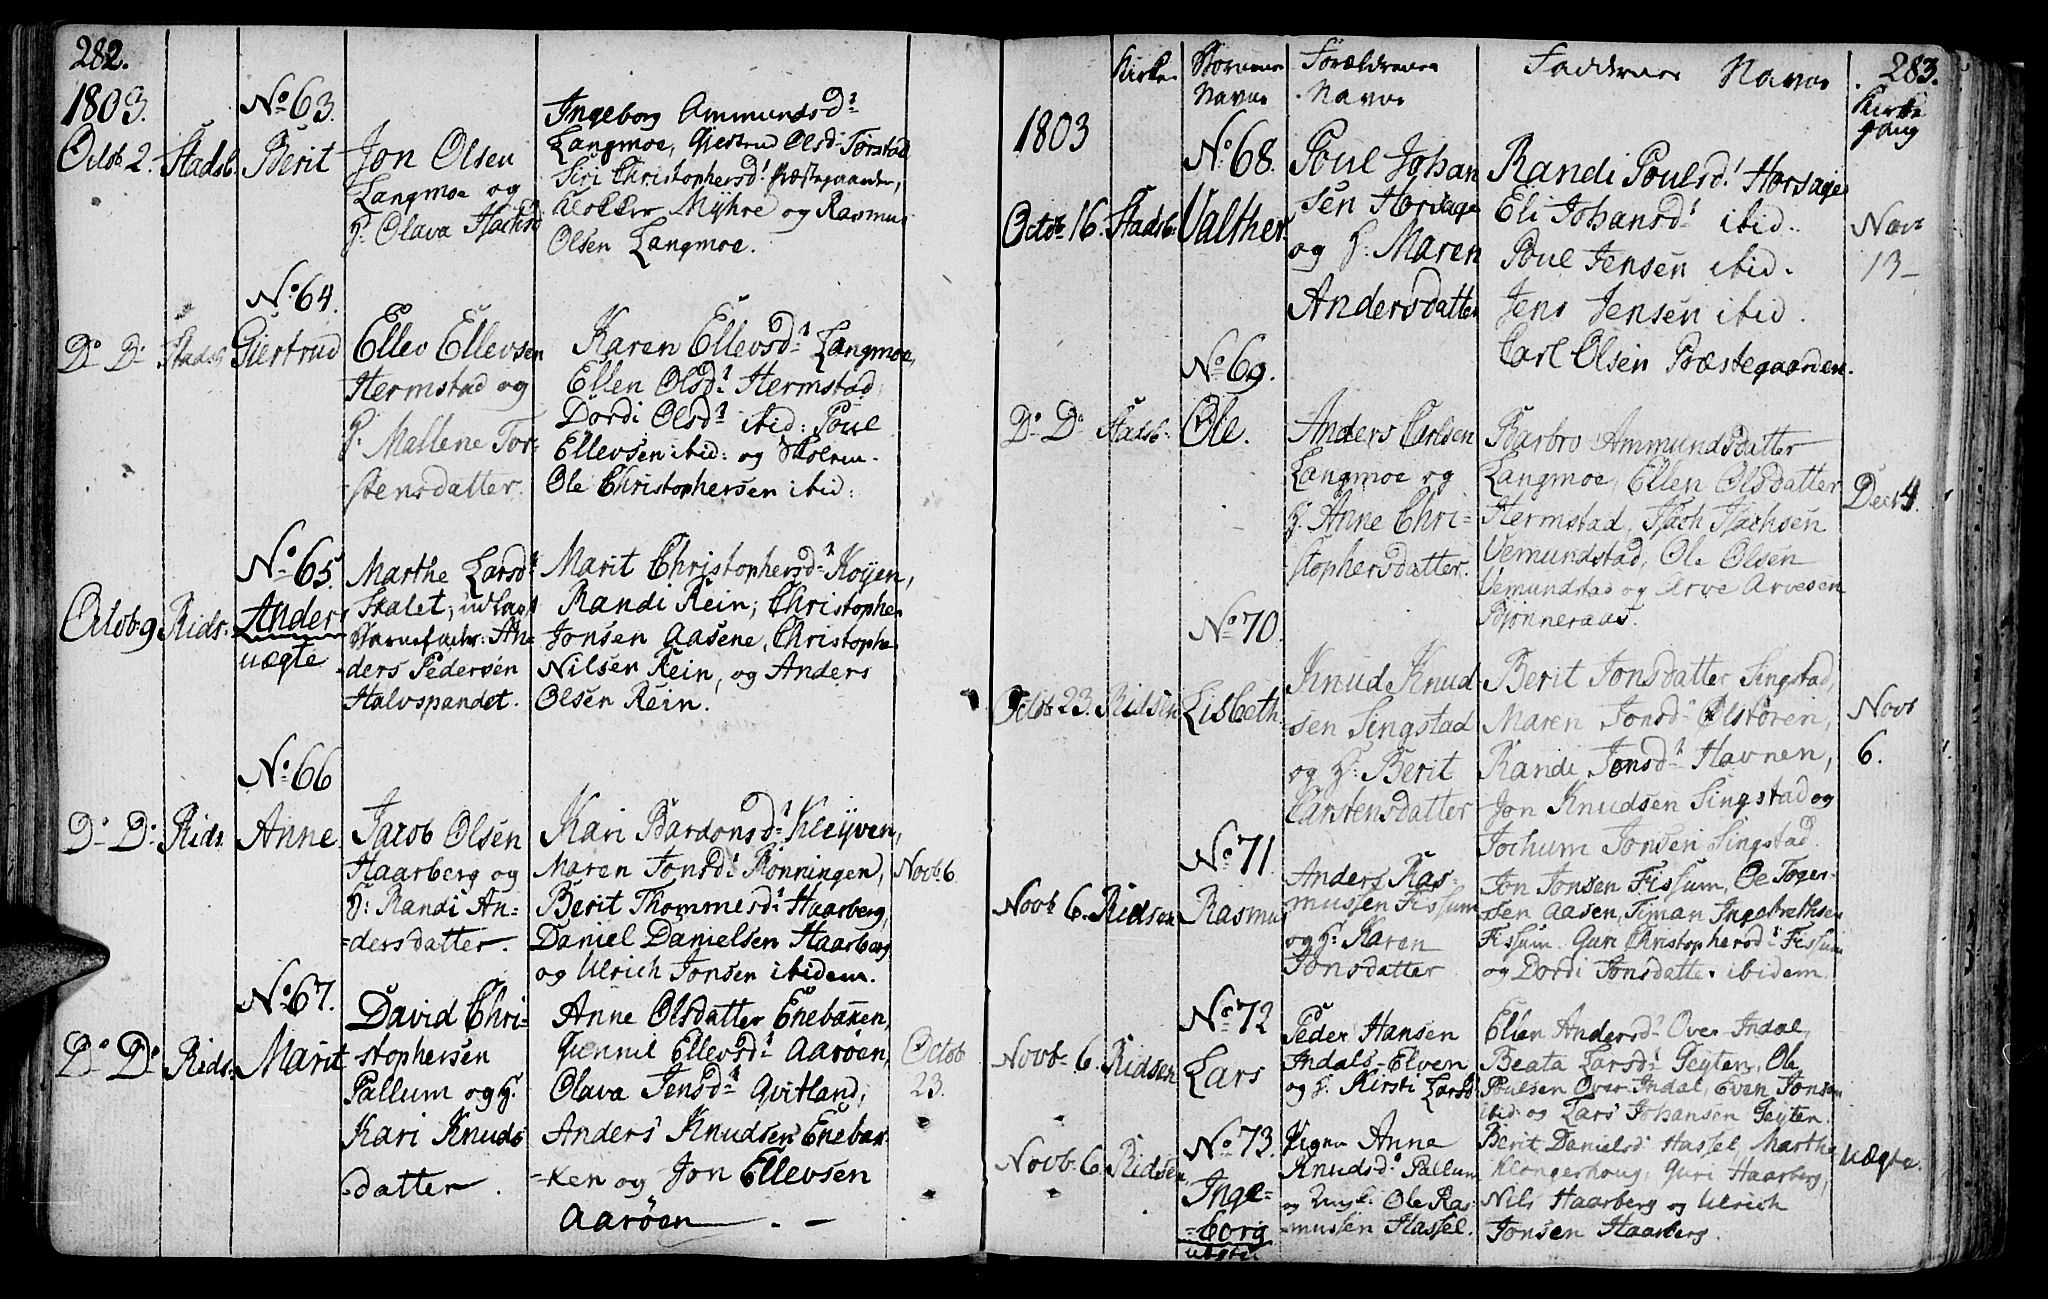 282.
1803.
No 63.
Octob 2. Stadsb. Berit
Jon Olsen
Langmoe og
H: Olava Hachsd
Ingeborg Ammundsdr
Langmoe, Giertrud Olsdr Torstad
Siri Christophersdr Præstegaarden,
Myhre og Rasmus
Olsen Langmoe.
No 64.
Do Do Stadsb Giertrud
Ellev Ellevsen
Hermstad og
H: Mallene Tor-
stensdatter.
Karen Ellevsdr Langmoe,
Ellen Olsdr Hermstad
Dordi Olsdr ibid: Poul
Ellevsen ibid: og Skolem.
Ole Christophersen ibid:
No 65.
Octob 9 Rids. Anders
uægte
Marthe Larsdr
Skalet, udlagt
Barnefader: An-
ders Pedersen
Halvspandet.
Marit Christophersdr Köyen,
Randi Rein, Christopher
Jonsen Aasene, Christopher
Nilsen Rein, og Anders
Olsen Rein.
No 66
Do Do Rids. Anne
Jacob Olsen
Haarberg og
H: Randi An-
dersdatter.
Kari Bardonsdr Kleyven,
Maren Jonsdr Rönningen,
Berit Thommesdr Haarberg,
Daniel Danielsen Haarberg
og Ulrich Jonsen ibidem.
Novb 6
No 67.
Do Do Rids. Marit
David Chri-
stophersen
Pallum og H.
Kari Knuds
datter.
Anne Olsdatter Enebakken,
Gunnil Ellevsdr Aaröen,
Olava Jensdr Qvitland,
Anders Knudsen Enebak-
ken og Jon Ellevsen
Aaröen
Octob
23.
Kirke Börnenes Navne
Forældrenes Navne
Faddernes Navne
283.
Kirke
gang
1803
No 68.
Octob 16. Stadsb. Valther
Poul Johan
sen Horsage
og H: Maren
Andersdatter
Randi Poulsdr Horsage
Eli Johansdr ibid.
Poul Jensen ibid.
Jens Jensen ibid.
Carl Olsen Præstegaarden.
Novb
13
No 69.
Do Do Stadsb. Ole.
Anders Carlsen
Langmoe og
H: Anne Chri-
stophersdatter.
Barbro Ammundsdatter
Langmoe, Ellen Olsdatter
Hermstad, Hach Hachsen
Vemundstad, Ole Olsen
Vemundstad og Arve Arvesen
Bönneraas.
Decb 4.
No 70.
Octob 23. Ridsen Lisbeth
Knud Knud
sen Singstad
og H: Berit
Carstensdatter
Berit Jonsdatter Singstad,
Maren Jonsdr Ölstören,
Randi Jonsdr Havnen,
Jon Knudsen Singstad og
Jochum Jonsen Singstad.
Novb
6.
No 71
Novb 6. Ridsen Rasmus
Anders Ras-
mussen Fissum
og H: Karen
Jonsdatter
Jon Jonsen Fissum, Ole Toger-
sen Aasen, Timan Ingebrethsen
Fissum. Guri Christophersdr Fissum
og Dordi Jonsdatter ibidem.
No 72
Novb 6. Ridsen Lars
Peder Hansen
Indals-Elven
og H. Kirsti Larsd
Elien Andersdr Over Indal,
Beata Larsdr Geyten, Ole
Poulsen Over Indal, Even Jonsen
ibid: og Lars Johansen Geyten.
No 73.
Novb. 6. Ridsen, Inge-
borg
uægte
Pigen Anne
Knudsdr Pallum
og Ole Ras-
mussen Hassel.
Berit Danielsdr Hassel, Marthe
Klongerhoug, Guri Haarberg,
Nils Haarberg og Ulrich
Jonsen Haarberg.
Uægte.